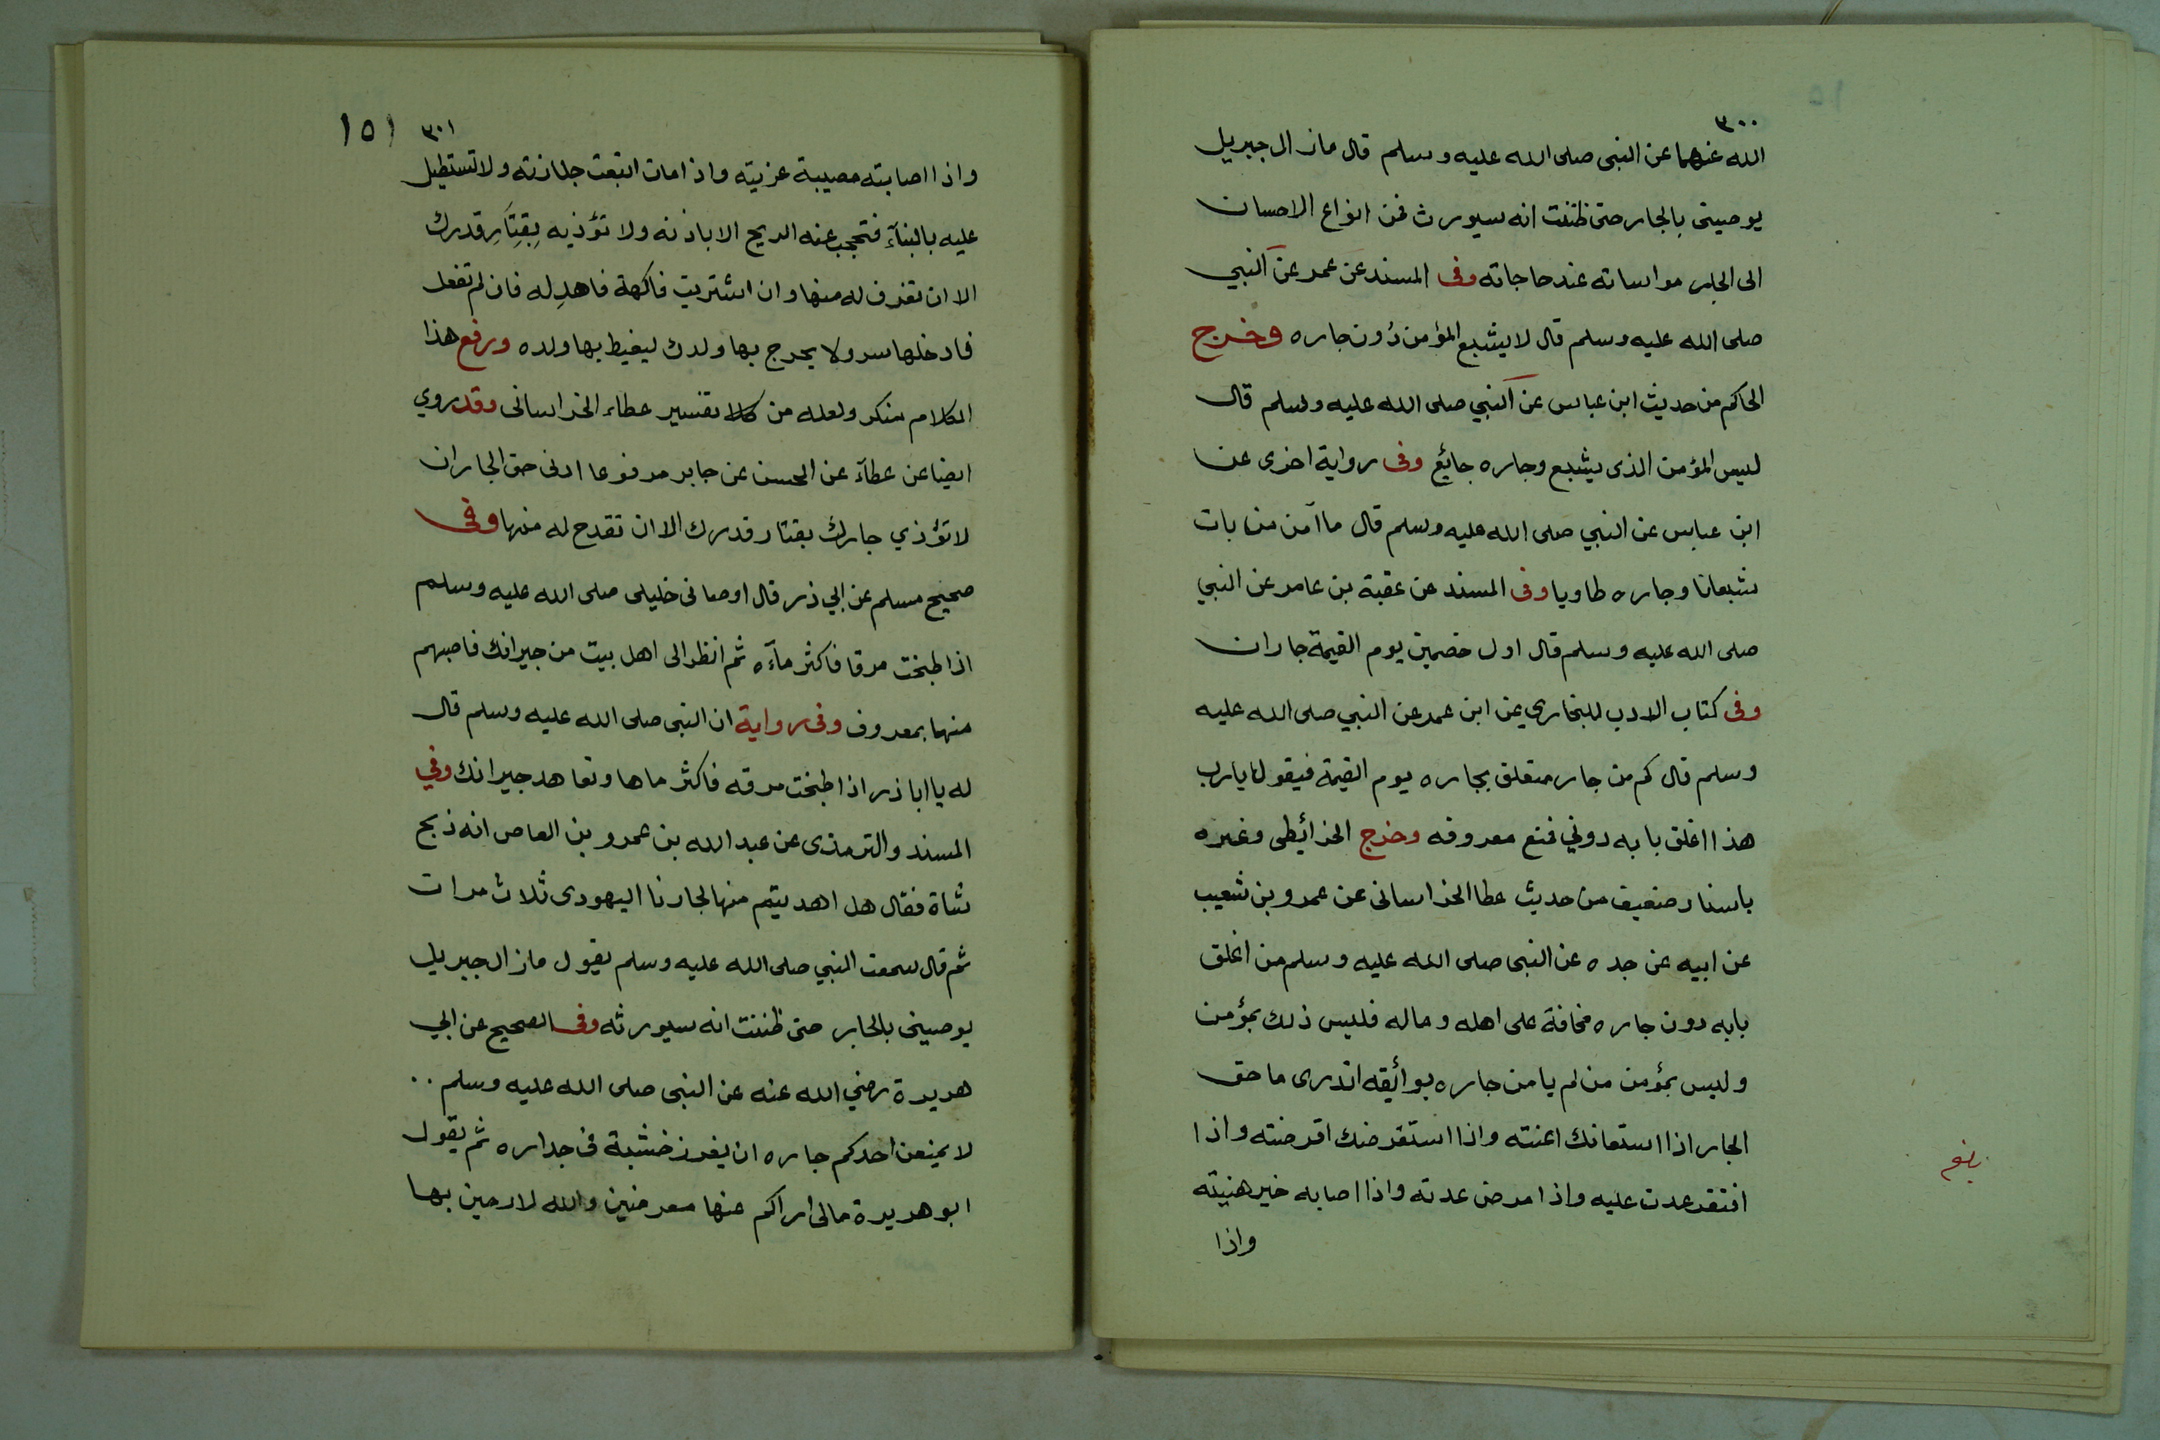 ٣٠٠
الله عنهما عن النبى صلى الله عليه وسلم قال مازال جبريل
يوصينى بالجار حتى ظننت انه سيورث فمن انواع الاحسان
الى الجار مواساته عند حاجاته وفى المسند عن عمر عن النبي
صلى الله عليه وسلم قال لايشبع المؤمن دُون جاره وخرج
الحاكم من حديث ابن عباس عن النبي صلى الله عليه وسلم قال
ليس المؤمن الذى يشبع وجاره جائع وفى رواية اخرى عن
ابن عباس عن النبي صلى الله عليه وسلم قال ما آمن من بات
شبعانا وجاره طاويا وفى المسند عن عقبة بن عامر عن النبي
صلى الله عليه وسلم قال اول خصمين يوم القيمة جاران
وفى كتاب الادب للبخارى عن ابن عمر عن النبي صلى الله عليه
وسلم قال كم من جار متعلق بجاره يوم القيمة فيقول يارب
هذا اغلق بابه دوني فمنع معروفه وخرج الخرائطى وغيره
باسناد ضعيف من حديث عطا الخراسانى عن عمرو بن شعيب
عن ابيه عن جده عن النبى صلى الله عليه وسلم من اغلق
بابه دون جاره مخافة على اهله وماله فليس ذلك بمؤمن
وليس بمؤمن من لم يامن جاره بوائقه اتدرى ما حق
الجار اذا استعانك اعنته واذا استقرضك اقرضته واذا
افتقر عدت عليه واذا مرض عدته واذا اصابه خير هنيته
واذا
بلغ
٣٠١ ١٥١
واذا اصابته مصيبة عزيته واذا مات اتبعت جنازته ولا تستطيل
عليه بالبنآء فتحجب عنه الريح الا باذنه ولا تؤذيه بِقِتَارِ قدرك
الا ان تغرف له منها وان اشتريت فاكهة فاهدِ له فان لم تفعل
فادخلها سر ولا يخرج بها ولدك ليغيط بها ولده ورفع هذا
الكلام منكر ولعله من تفسير عطاء الخراسانى وقد روي
ايضا عن عطآء عن الحسن عن جابر مرفوعا ادنى حق الجار ان
لا تؤذي جارك بقتار قدرك الا ان تقدح له منها وفى
صحيح مسلم عن ابي ذر قال اوصانى خليلى صلى الله عليه وسلم
اذا طبخت مرقا فاكثر مآءه ثم انظر الى اهل بيت من جيرانك فاصبهم
منها بمعروف وفى رواية ان النبى صلى الله عليه وسلم قال
له يا اباذر اذا طبخت مرقه فاكثر ماها وتعاهد جيرانك وفي
المسند والترمذى عن عبد الله بن عمرو بن العاص انه ذبح
شاة فقال هل اهديتم منها لجارنا اليهودى ثلاث مرات
ثم قال سمعت النبي صلى الله عليه وسلم يقول مازال جبريل
يوصينى بالجار حتى ظننت انه سيورثه وفى الصحيح عن ابي
هريرة رضي الله عنه عن النبى صلى الله عليه وسلم ..
لا يمنعن احدكم جاره ان يغرز خشبة فى جداره ثم يقول
ابو هريرة مالى اراكم عنها معرضين والله لارمين بها